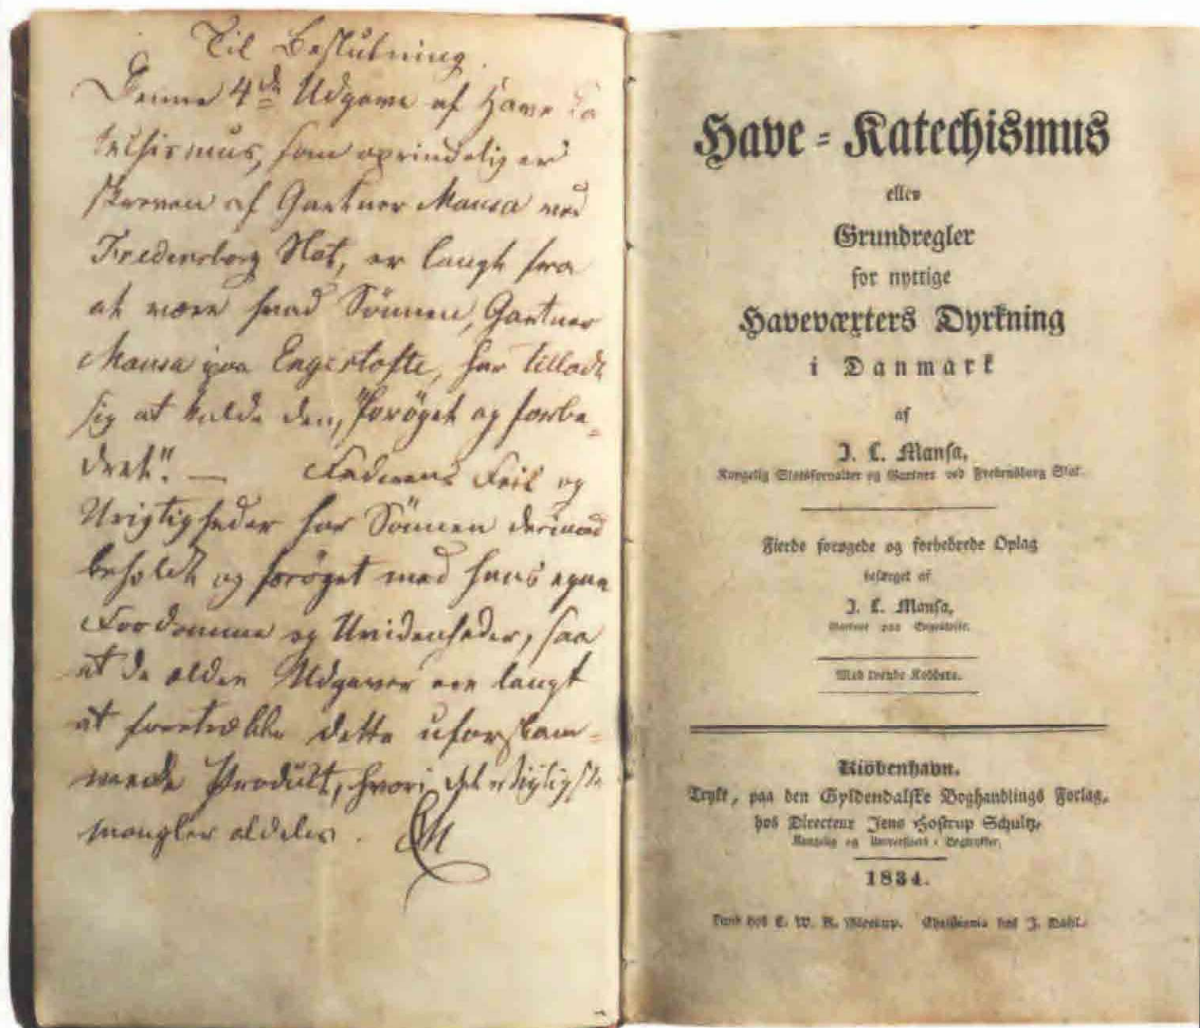 Til Beslutning.
Denne 4de Udgave af Have Ka
techismus, som oprindelig er
skreven af Gartner Mansa ved
Fredensborg Slot, er langt fra
at være hvad Sönnen, Gartner
Mansa paa Engestofte, har tilladt
sig at kalde den, "forøget og forbe-
dret". — Faderens Feil og
Urigtigheder har Sönnen derimod
beholdt og forøget med hans egne
Fordomme og Uvidenheder, saa
at de ældre Udgaver ere langt
at foretrække dette uforskam-
mede Product, hvori det vigtigste
mangler aldeles.
Have-Katechismus
eller
Grundregler
for nyttige
Havevæxters Dyrkning
i Danmark
af
J. L. Mansa,
Kongelig Slotsforvalter og Gartner ved Fredensborg Slot.
Fierde forøgede og forbedrede Oplag
besørget af
J. L. Mansa,
Gartner paa Engestofte.
Med tvende Kobbere.
Kiöbenhavn.
Trykt, paa den Gyldendalske Boghandlings Forlag,
hos Directeur Jens Hostrup Schultz,
Kongelig og Universitets-Bogtrykker.
1834.
Lund hos C. W. K. Gleerup. Christiania hos J. Dahl.